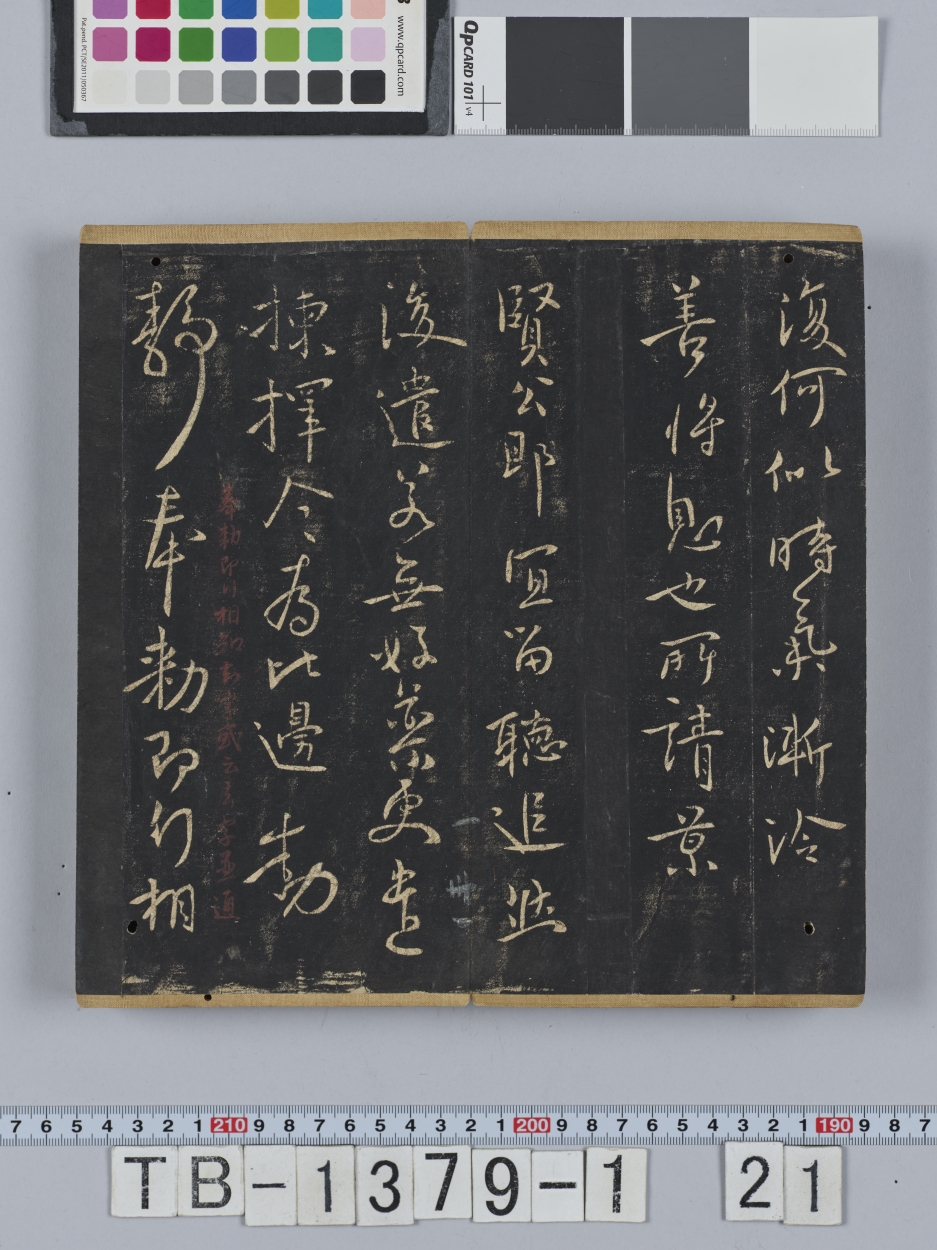 www.qpcard.com
Pat.pend. PCT/SE2011/050367
QPCARD 101 v4
復何似時氣漸冷
善將息也所請景
賢公 宜留聽追
後遣若無好藥更遣
揀擇今為比邊動
靜奉勅即行相
奉勅即行相
7 6 5 4 3 2 1 210 9 8 7 6 5 4 3 2 1 200 9 8 7 6 5 4 3 2 1 190 9 8 7
TB-1379-1 21